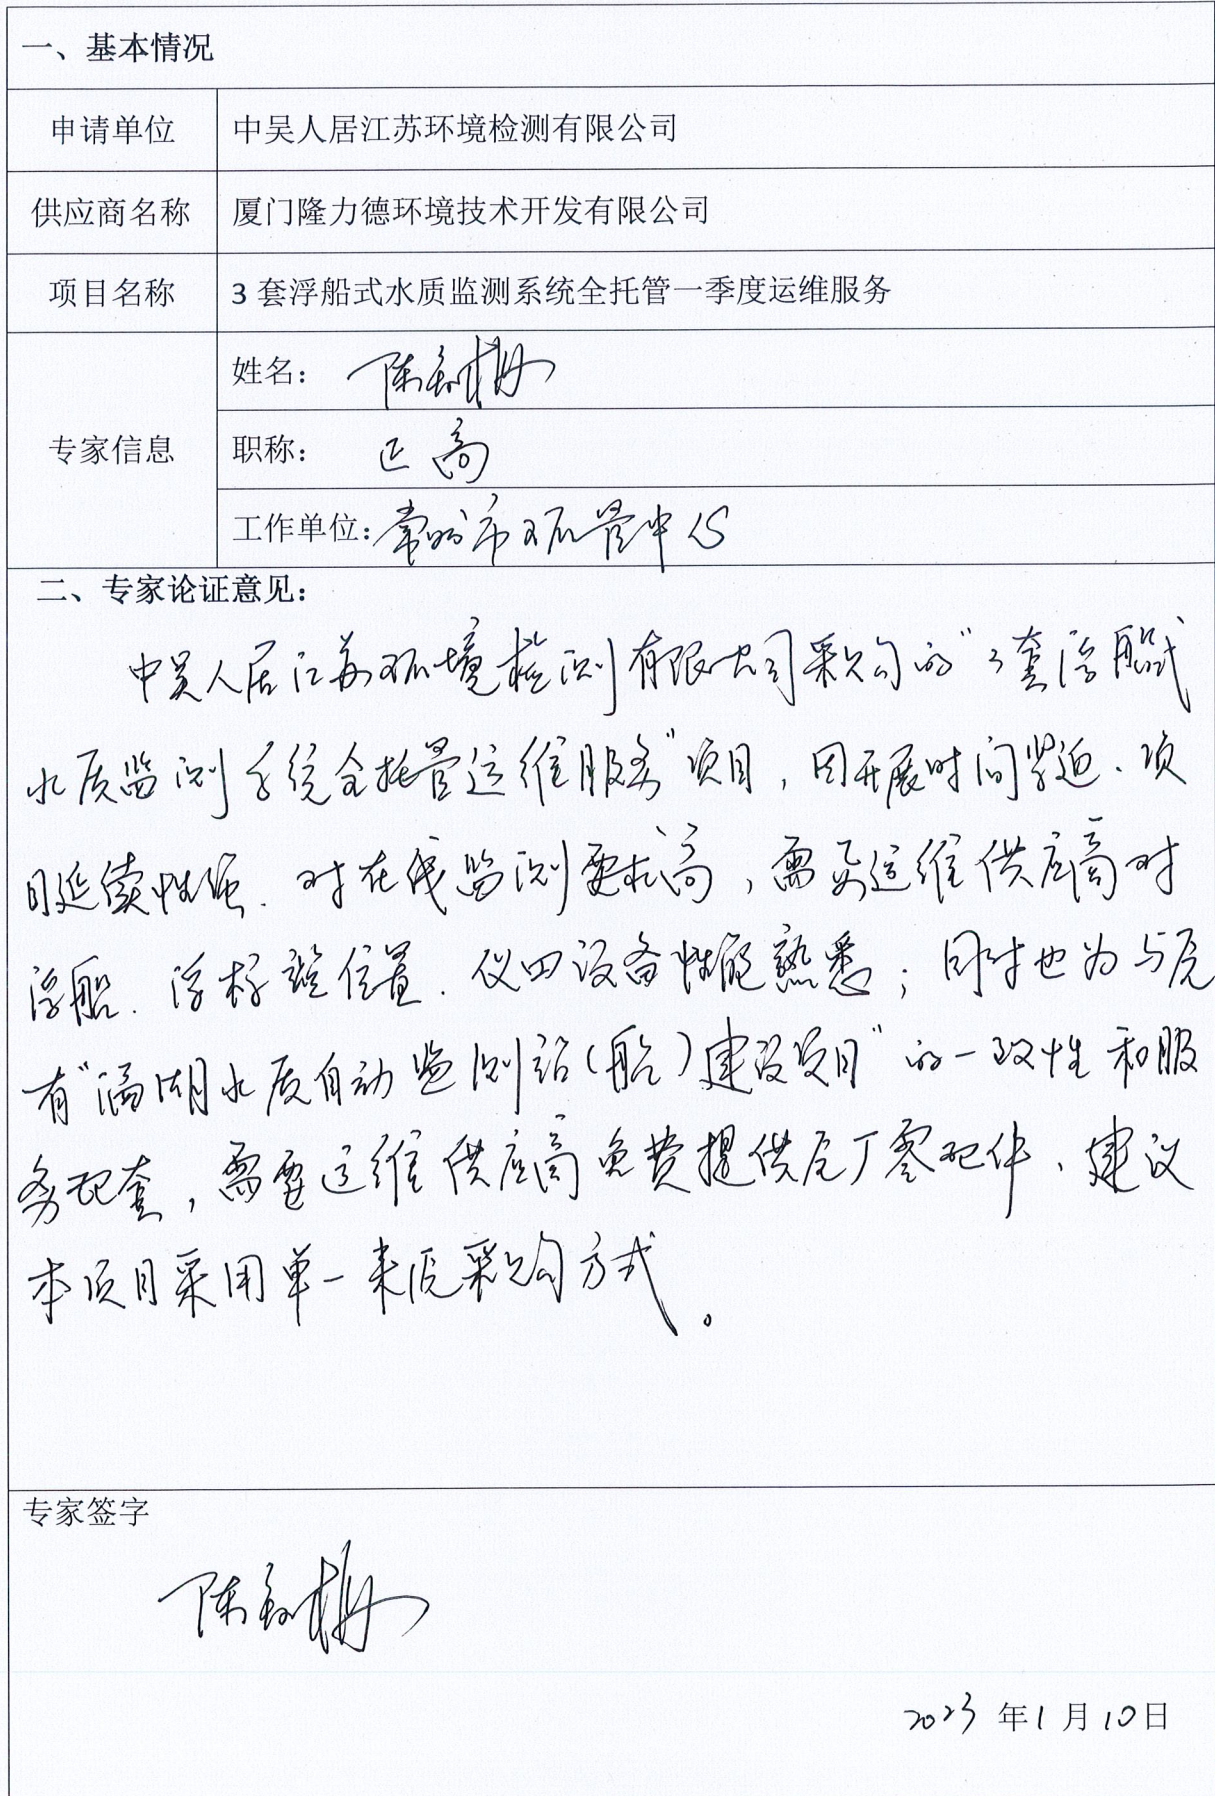 一、基本情况
申请单位 中吴人居江苏环境检测有限公司
供应商名称 厦门隆力德环境技术开发有限公司
项目名称 3套浮船式水质监测系统全托管一季度运维服务
专家信息
姓名: 陈
职称: 正高
工作单位: 常州市环管中心
二、专家论证意见:
中吴人居江苏环境检测有限公司采购的“3套浮船式
水质监测系统全托管运维服务”项目,因开展时间紧迫、项
目延续性强、对在线监测要求高,需要运维供应商对
浮船、浮标站位置、仪器设备性能熟悉;同时也为与原
有“滆湖水质自动监测站(船)建设项目”的一致性和服
务配套,需要运维供应商免费提供原厂零配件、建议
本项目采用单一来源采购方式。
专家签字
陈
2023年1月10日